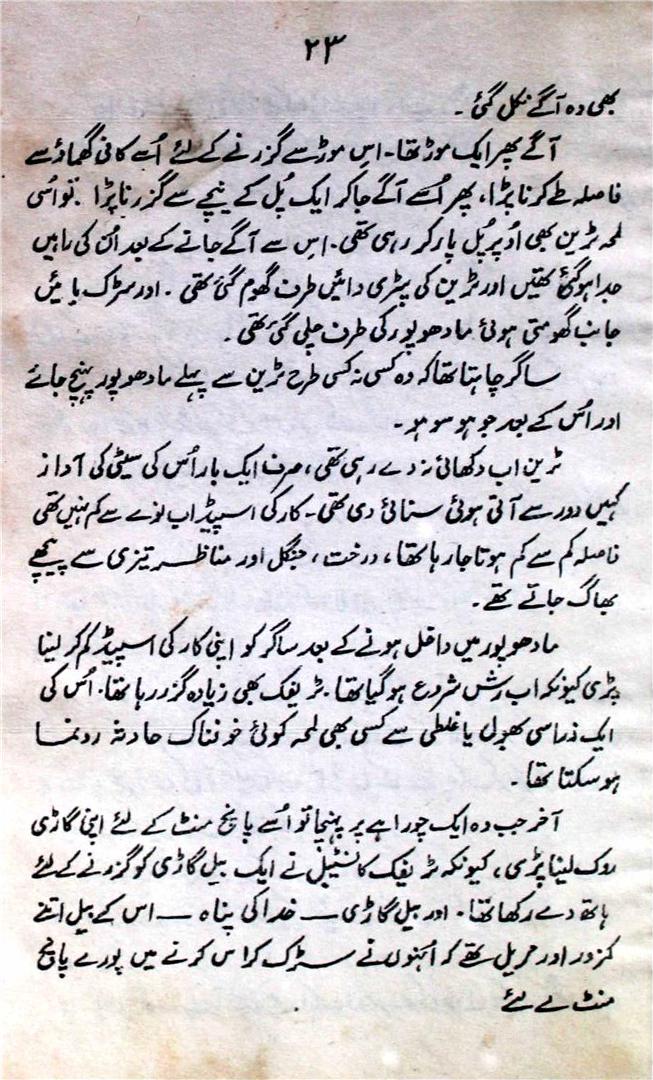 ۲۳
بھی وہ آگے نکل گئی۔
آگے پھر ایک موڑ تھا۔ اس موڑ سے گزرنے کے لئے اُسے کافی گھماؤ سے
فاصلہ طے کرنا پڑا، پھر اُسے آگے جا کر ایک پُل کے نیچے سے گزرنا پڑا۔ تو اُسی
لمحہ ٹرین بھی اُوپر پُل پار کر رہی تھی۔ اس سے آگے جانے کے بعد اُن کی راہیں
جدا ہو گئی تھیں اور ٹرین کی پٹری دائیں طرف گھوم گئی تھی۔ اور سڑک بائیں
جانب گھومتی ہوئی مادھو پور کی طرف چلی گئی تھی۔
ساگر چاہتا تھا کہ وہ کسی نہ کسی طرح ٹرین سے پہلے مادھو پور پہنچ جائے
اور اُس کے بعد جو ہو سو ہو۔
ٹرین اب دکھائی نہ دے رہی تھی، صرف ایک بار اُس کی سیٹی کی آواز
کہیں دور سے آتی ہوئی سنائی دی تھی۔ کار کی اسپیڈ اب نوّے سے کم نہیں تھی
فاصلہ کم سے کم ہوتا جا رہا تھا، درخت، جنگل اور مناظر تیزی سے پیچھے
بھاگ جاتے تھے۔
مادھو پور میں داخل ہونے کے بعد ساگر کو اپنی کار کی اسپیڈ کم کر لینا
پڑی کیونکہ اب رش شروع ہو گیا تھا۔ ٹریفک بھی زیادہ گزر رہا تھا۔ اُس کی
ایک ذرا سی بھول یا غلطی سے کسی بھی لمحہ کوئی خوفناک حادثہ رونما
ہو سکتا تھا۔
آخر جب وہ ایک چوراہے پر پہنچا تو اُسے پانچ منٹ کے لئے اپنی گاڑی
روک لینا پڑی، کیونکہ ٹریفک کانسٹیبل نے ایک بیل گاڑی کو گزرنے کے لئے
ہاتھ دے رکھا تھا۔ اور بیل گاڑی — خدا کی پناہ — اس کے بیل اتنے
کمزور اور مریل تھے کہ اُنہوں نے سڑک کراس کرنے میں پورے پانچ
منٹ لے لئے